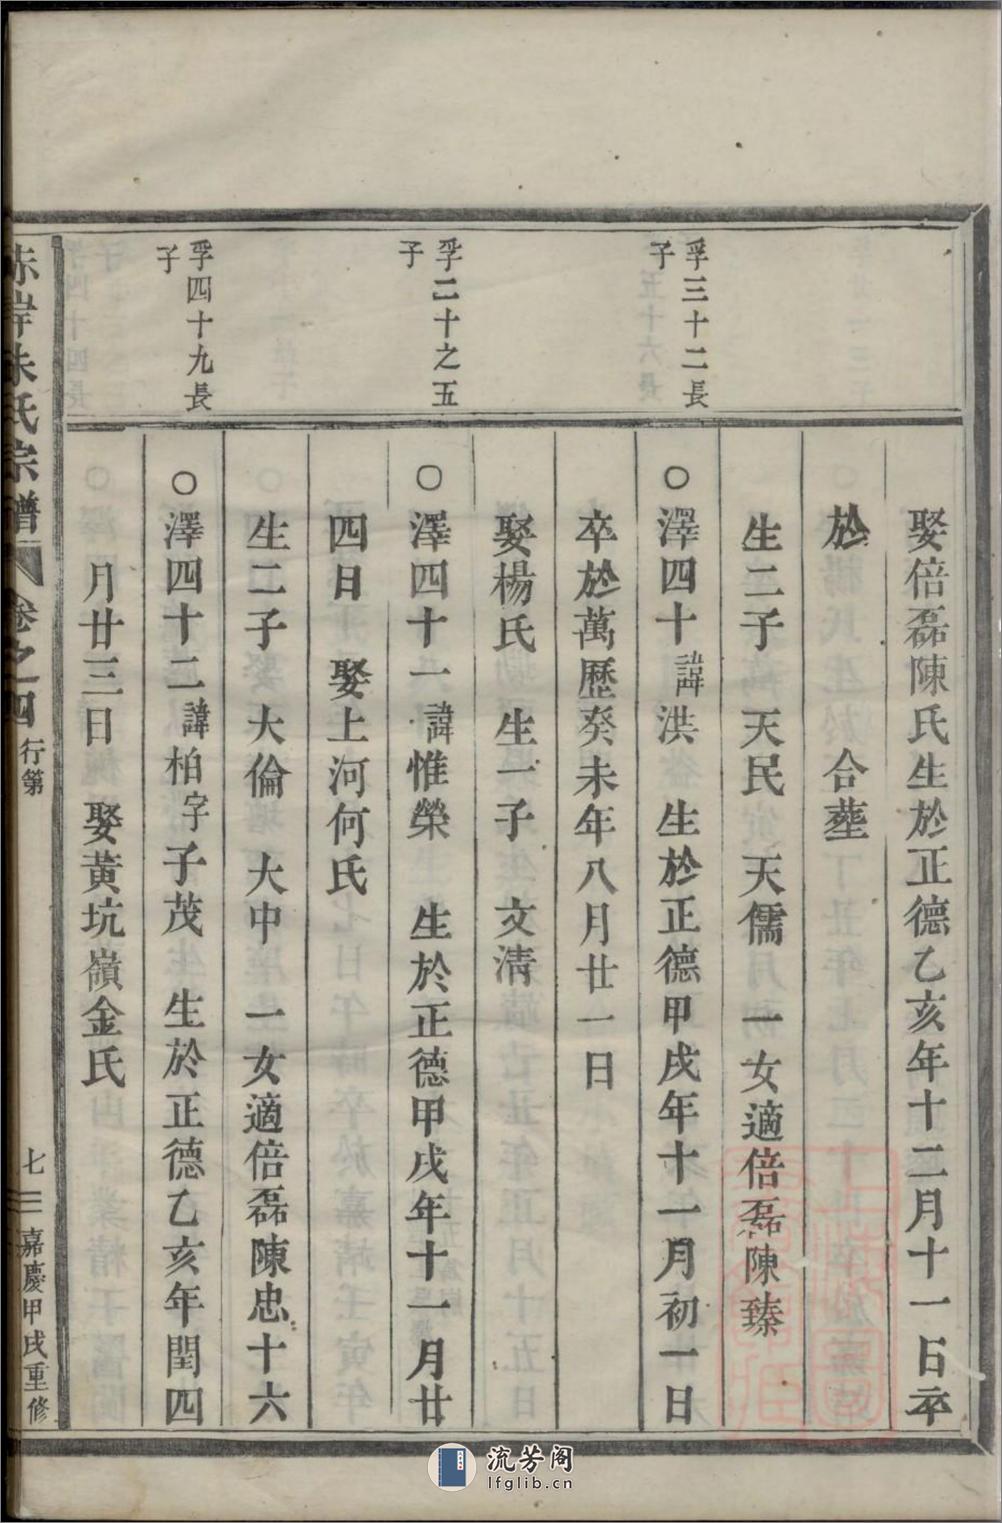 娶倍磊陳氏生於正德乙亥年十二月十一日卒
於 合塟
生二子 天民 天儒 一女適倍磊陳臻
孚三十二長
子
○澤四十諱洪 生於正德甲戌年十一月初一日
卒於萬歷癸未年八月廿一日
娶楊氏 生一子 文清
孚二十之五
子
○澤四十一諱惟榮 生於正德甲戌年十一月廿
四日 娶上河何氏
生二子 大倫 大中 一女適倍磊陳忠十六
孚四十九長
子
○澤四十二諱柏字子茂 生於正德乙亥年閏四
月廿三日 娶黃坑嶺金氏
赤岸朱氏宗譜 卷之四 行第 七 嘉慶甲戌重修
流芳阁
lfglib.cn